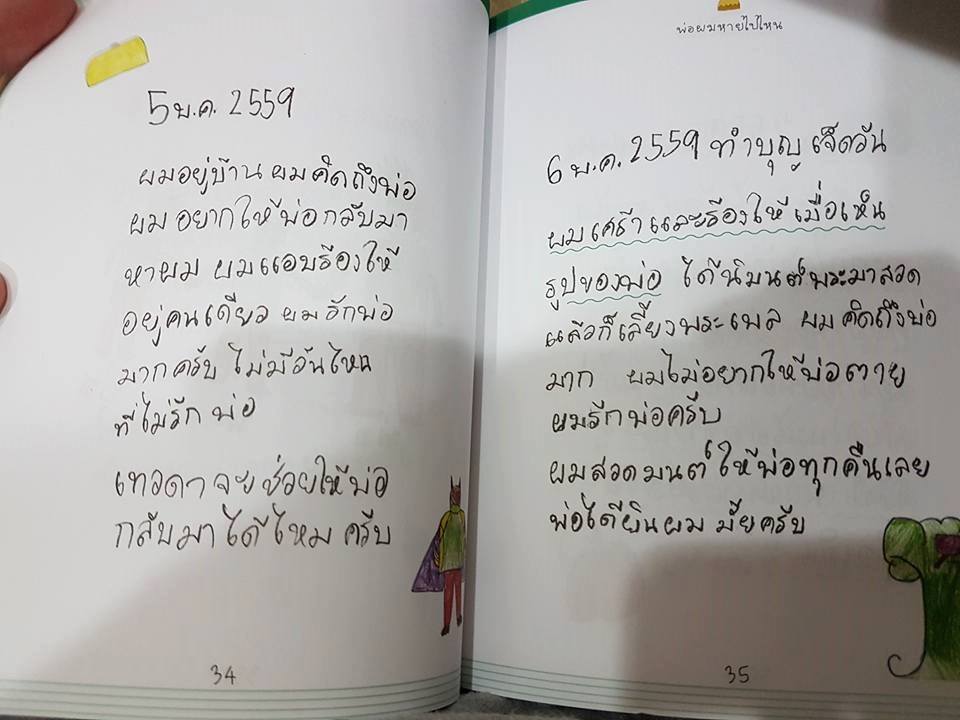 5 พ.ค. 2559
ผมอยู่บ้าน ผมคิดถึงพ่อ
ผมอยากให้พ่อกลับมา
หาผม ผมแอบร้องไห้
อยู่คนเดียว ผมรักพ่อ
มากครับ ไม่มีวันไหน
ที่ไม่รักพ่อ
เทวดาจะช่วยให้พ่อ
กลับมาได้ไหมครับ
34
พ่อผมหายไปไหน
6 พ.ค. 2559 ทำบุญเจ็ดวัน
ผมเศร้าและร้องไห้เมื่อเห็น
รูปของพ่อ ได้นิมนต์พระมาสวด
แล้วก็เลี้ยงพระเพล ผมคิดถึงพ่อ
มาก ผมไม่อยากให้พ่อตาย
ผมรักพ่อครับ
ผมสวดมนต์ให้พ่อทุกคืนเลย
พ่อได้ยินผมมั้ยครับ
35